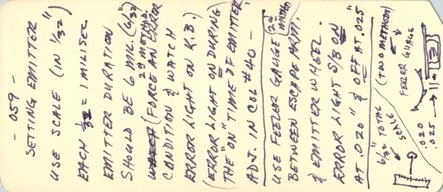 - 059 -
SETTING EMITTER
USE SCALE (IN 1/32")
EACH 1/32 = MILISEC
EMITTER DURATION
SHOULD BE 6 MIL. (6/32")
2nd METHOD
(FORCE AN ERROR
CONDITION & WATCH
ERROR LIGHT ON K.B.)
(ERROR LIGHT ON DURING
THE "ON" TIME OF EMITTER
ADJ. IN COL #40 -
USE FEELER GAUGE (2nd METHOD)
BETWEEN ESCAPE ARM.
& EMITTER WHEEL.
ERROR LIGHT S/B ON
AT .020" & OFF AT .025"
1/32" TOTAL (TWO METHODS)
SCALE &
FEELER GUAGE
.020
.025